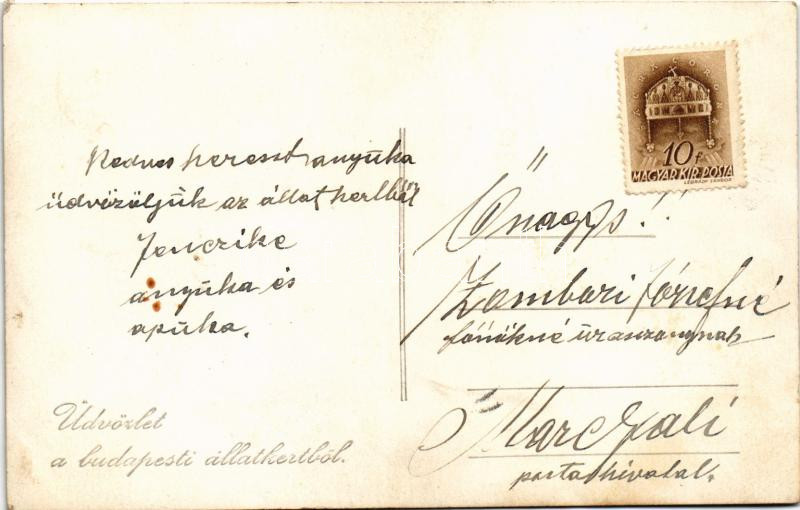 Kedves kereszt anyuka
üdvözöljük az állat kertből
Jenczike
anyuka és
apuka.
Üdvözlet
a budapesti állatkertből.
10 f
MAGYAR KIR. POSTA
LÉGRÁDY SÁNDOR
Őnagys!!
Zambari Józsefné
főnökné úraszonynak
Marczali
postahivatal.